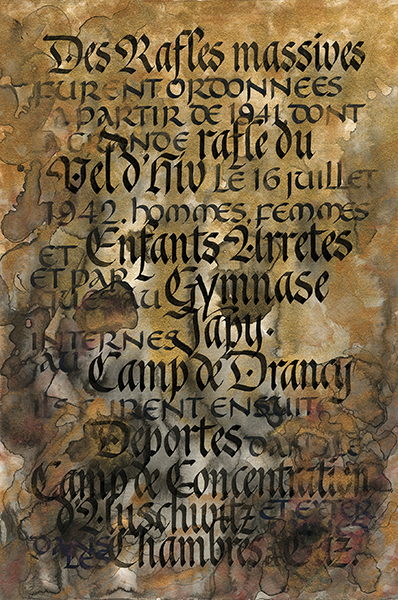 Des Rafles massives
FURENT ORDONNEES
A PARTIR DE 1941, DONT
LA GRANDE rafle du
Vel d'hiv LE 16 JUILLET
1942. hOMMES, FEMMES
ET Enfants Arretes
ET PAR Gymnase
AU
INTERNES Japy.
AU Camp de Drancy
ILS FURENT ENSUIT
Deportes DANS LE
Camp de Concentration
d'Auschwitz ET EXTER
DANS LES Chambres a Gaz.